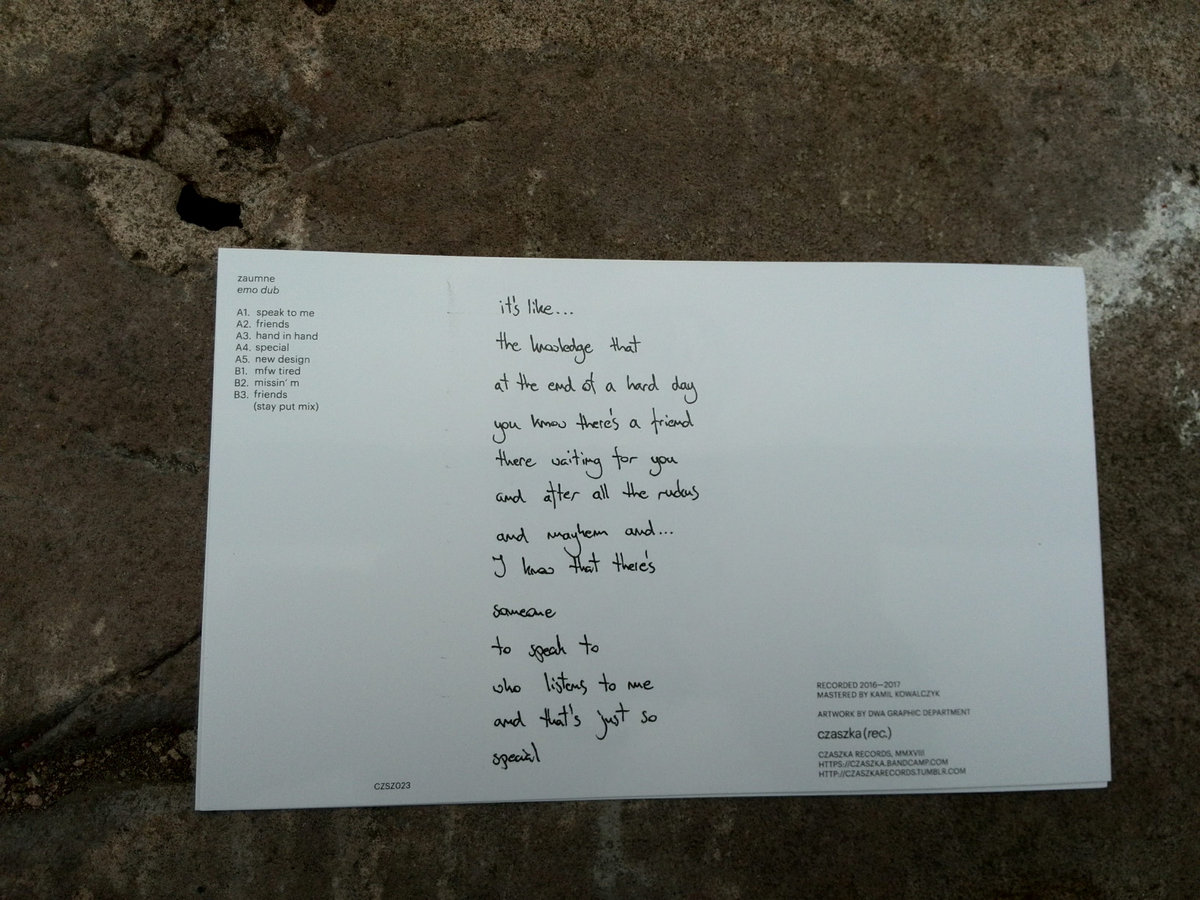 zaumne
emo dub
A1. speak to me
A2. friends
A3. hand in hand
A4. special
A5. new design
B1. mfw tired
B2. missin' m
B3. friends
(stay put mix)
it's like...
the knowledge that
at the end of a hard day
you know there's a friend
there waiting for you
and after all the ruckus
and mayhem and...
I know that there's
someone
to speak to
who listens to me
and that's just so
special
RECORDED 2016—2017
MASTERED BY KAMIL KOWALCZYK
ARTWORK BY DWA GRAPHIC DEPARTMENT
czaszka (rec.)
CZASZKA RECORDS, MMXVIII
HTTPS://CZASZKA.BANDCAMP.COM
HTTP://CZASZKARECORDS.TUMBLR.COM
CZSZ023